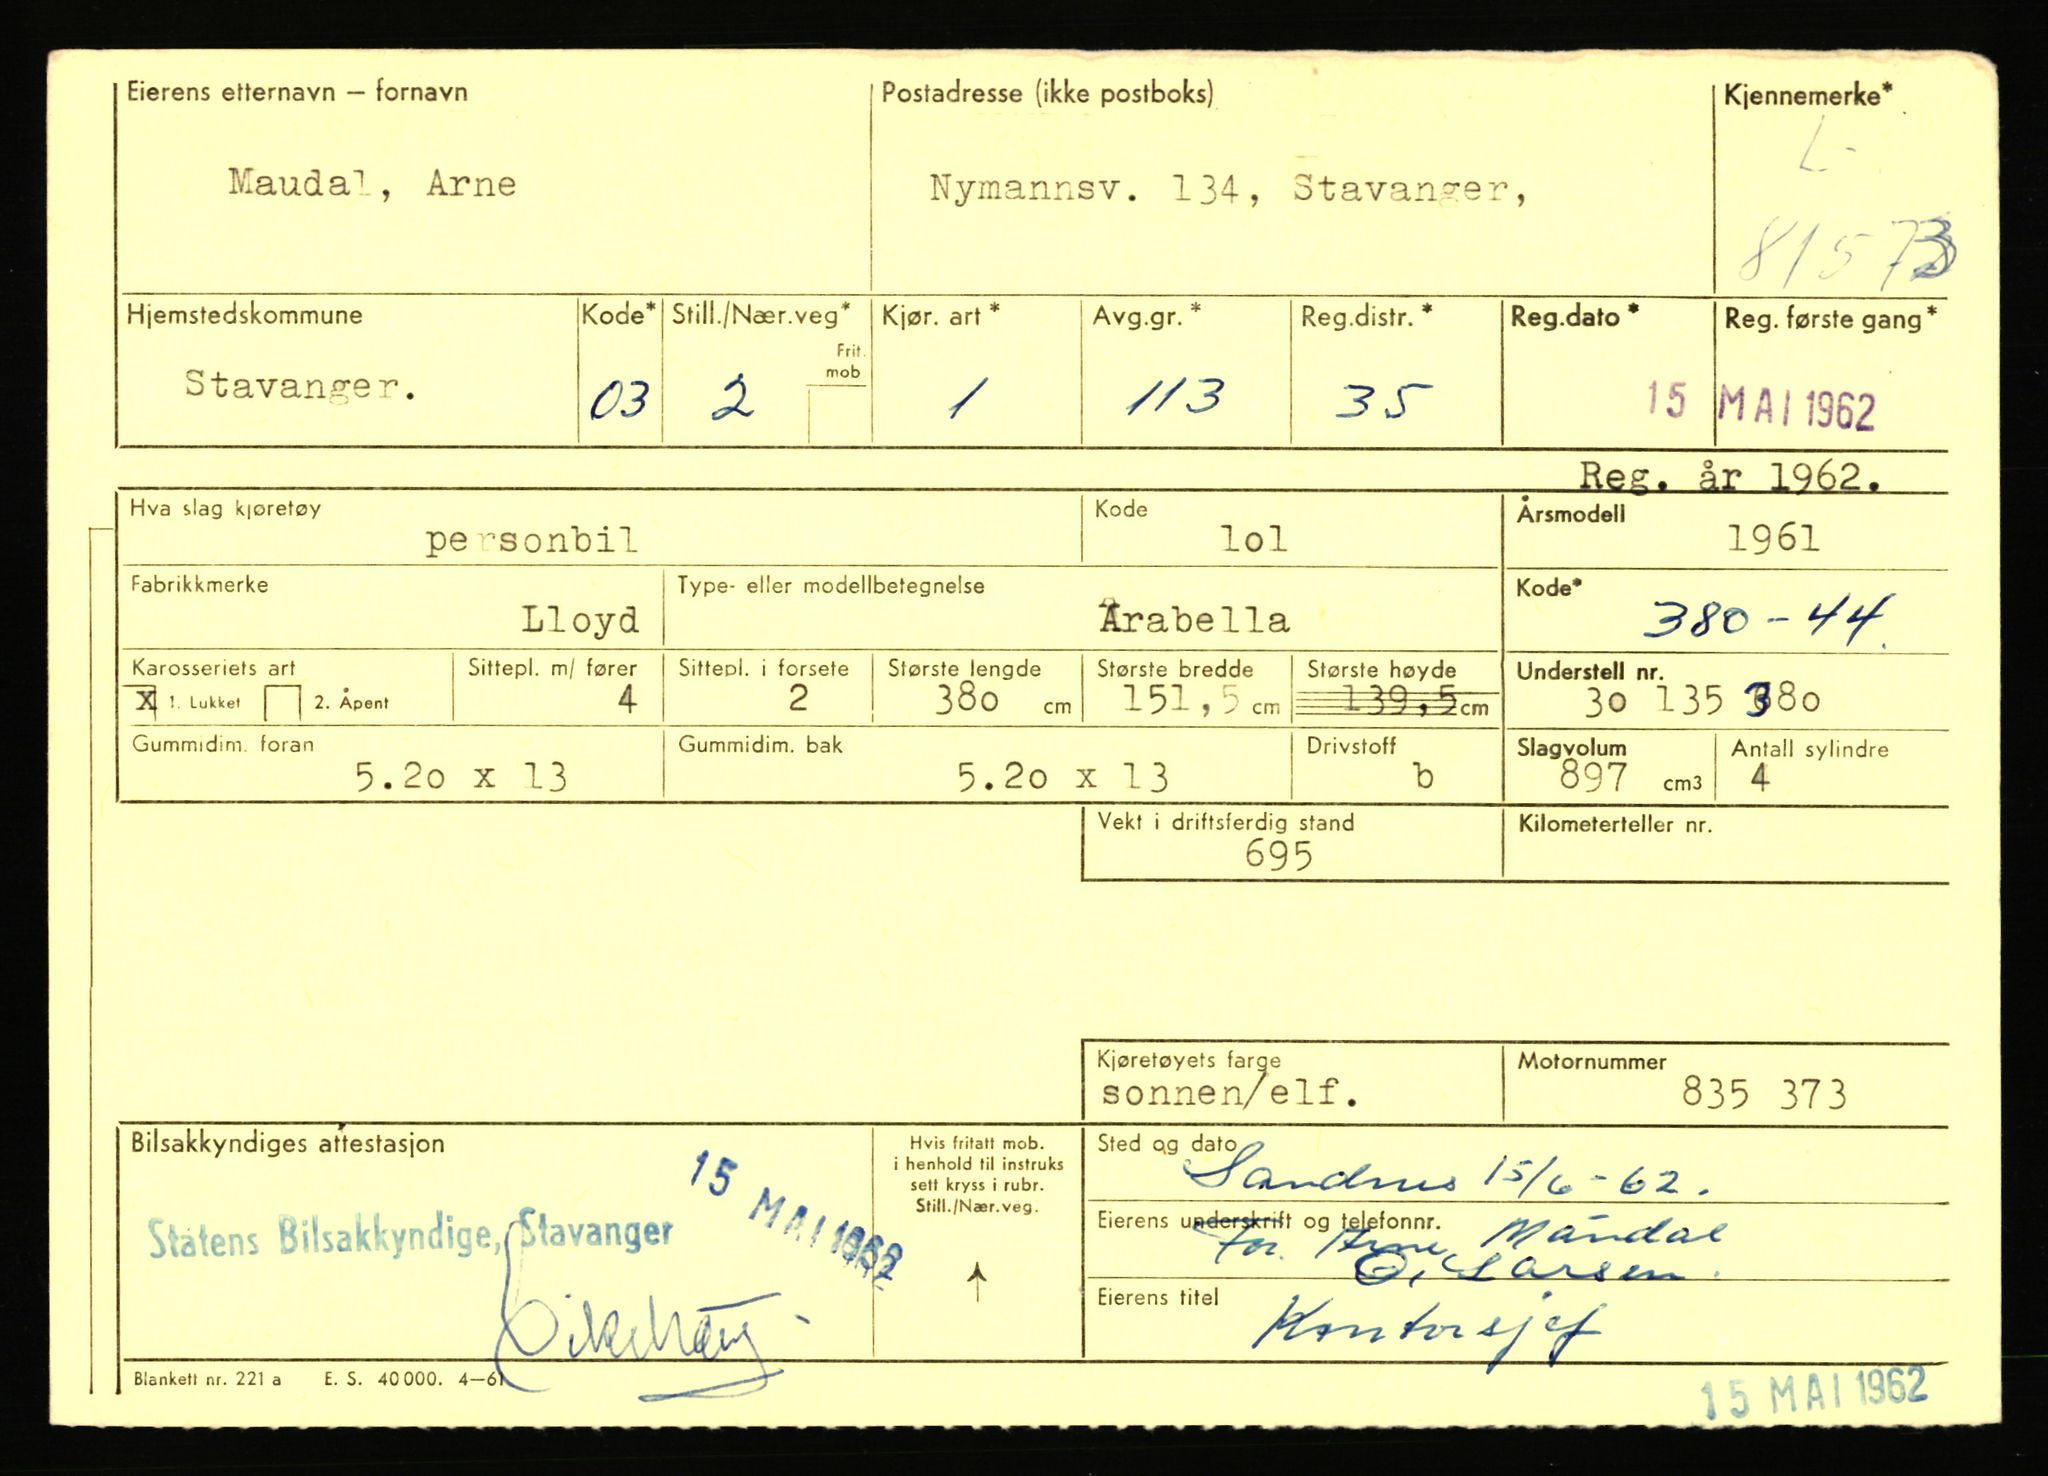 Eierens etternavn — fornavn Postadresse (ikke postboks) Kjennemerke*
L-
Maudal, Arne Nymannsv. 134, Stavanger,
8157
Hjemstedskommune Kode* Still./Nær.veg* Kjør. art * Avg.gr. * Reg.distr. * Reg.dato * Reg. første gang *
Frit.
mob
Stavanger. 03 2 1 113 35 15 MAI 1962
Reg. år 1962.
Hva slag kjøretøy Kode Årsmodell
personbil lol 1961
Fabrikkmerke Type- eller modellbetegnelse Kode*
Lloyd Arabella 380-44.
Karosseriets art Sittepl. m/ fører Sittepl. i forsete Største lengde Største bredde Største høyde Understell nr.
X 1. Lukket 2. Åpent 4 2 38o cm 151,5 cm 139,5 cm 3o 135 38o
Gummidim. foran Gummidim. bak Drivstoff Slagvolum Antall sylindre
5.2o x 13 5.2o x 13 b 897 cm3 4
Vekt i driftsferdig stand Kilometerteller nr.
695
Kjøretøyets farge Motornummer
sonnen/elf. 835 373
Bilsakkyndiges attestasjon Hvis fritatt mob. Sted og dato
i henhold til instruks
sett kryss i rubr.
Still./Nær.veg.
15 MAI 1962 Sandnes 15/6-62.
Statens Bilsakkyndige, Stavanger Eierens underskrift og telefonnr.
for. Arne Maudal
O. Larsen.
Eierens titel
Kontorsjef
Blankett nr. 221 a E. S. 40 000. 4—61
15 MAI 1962